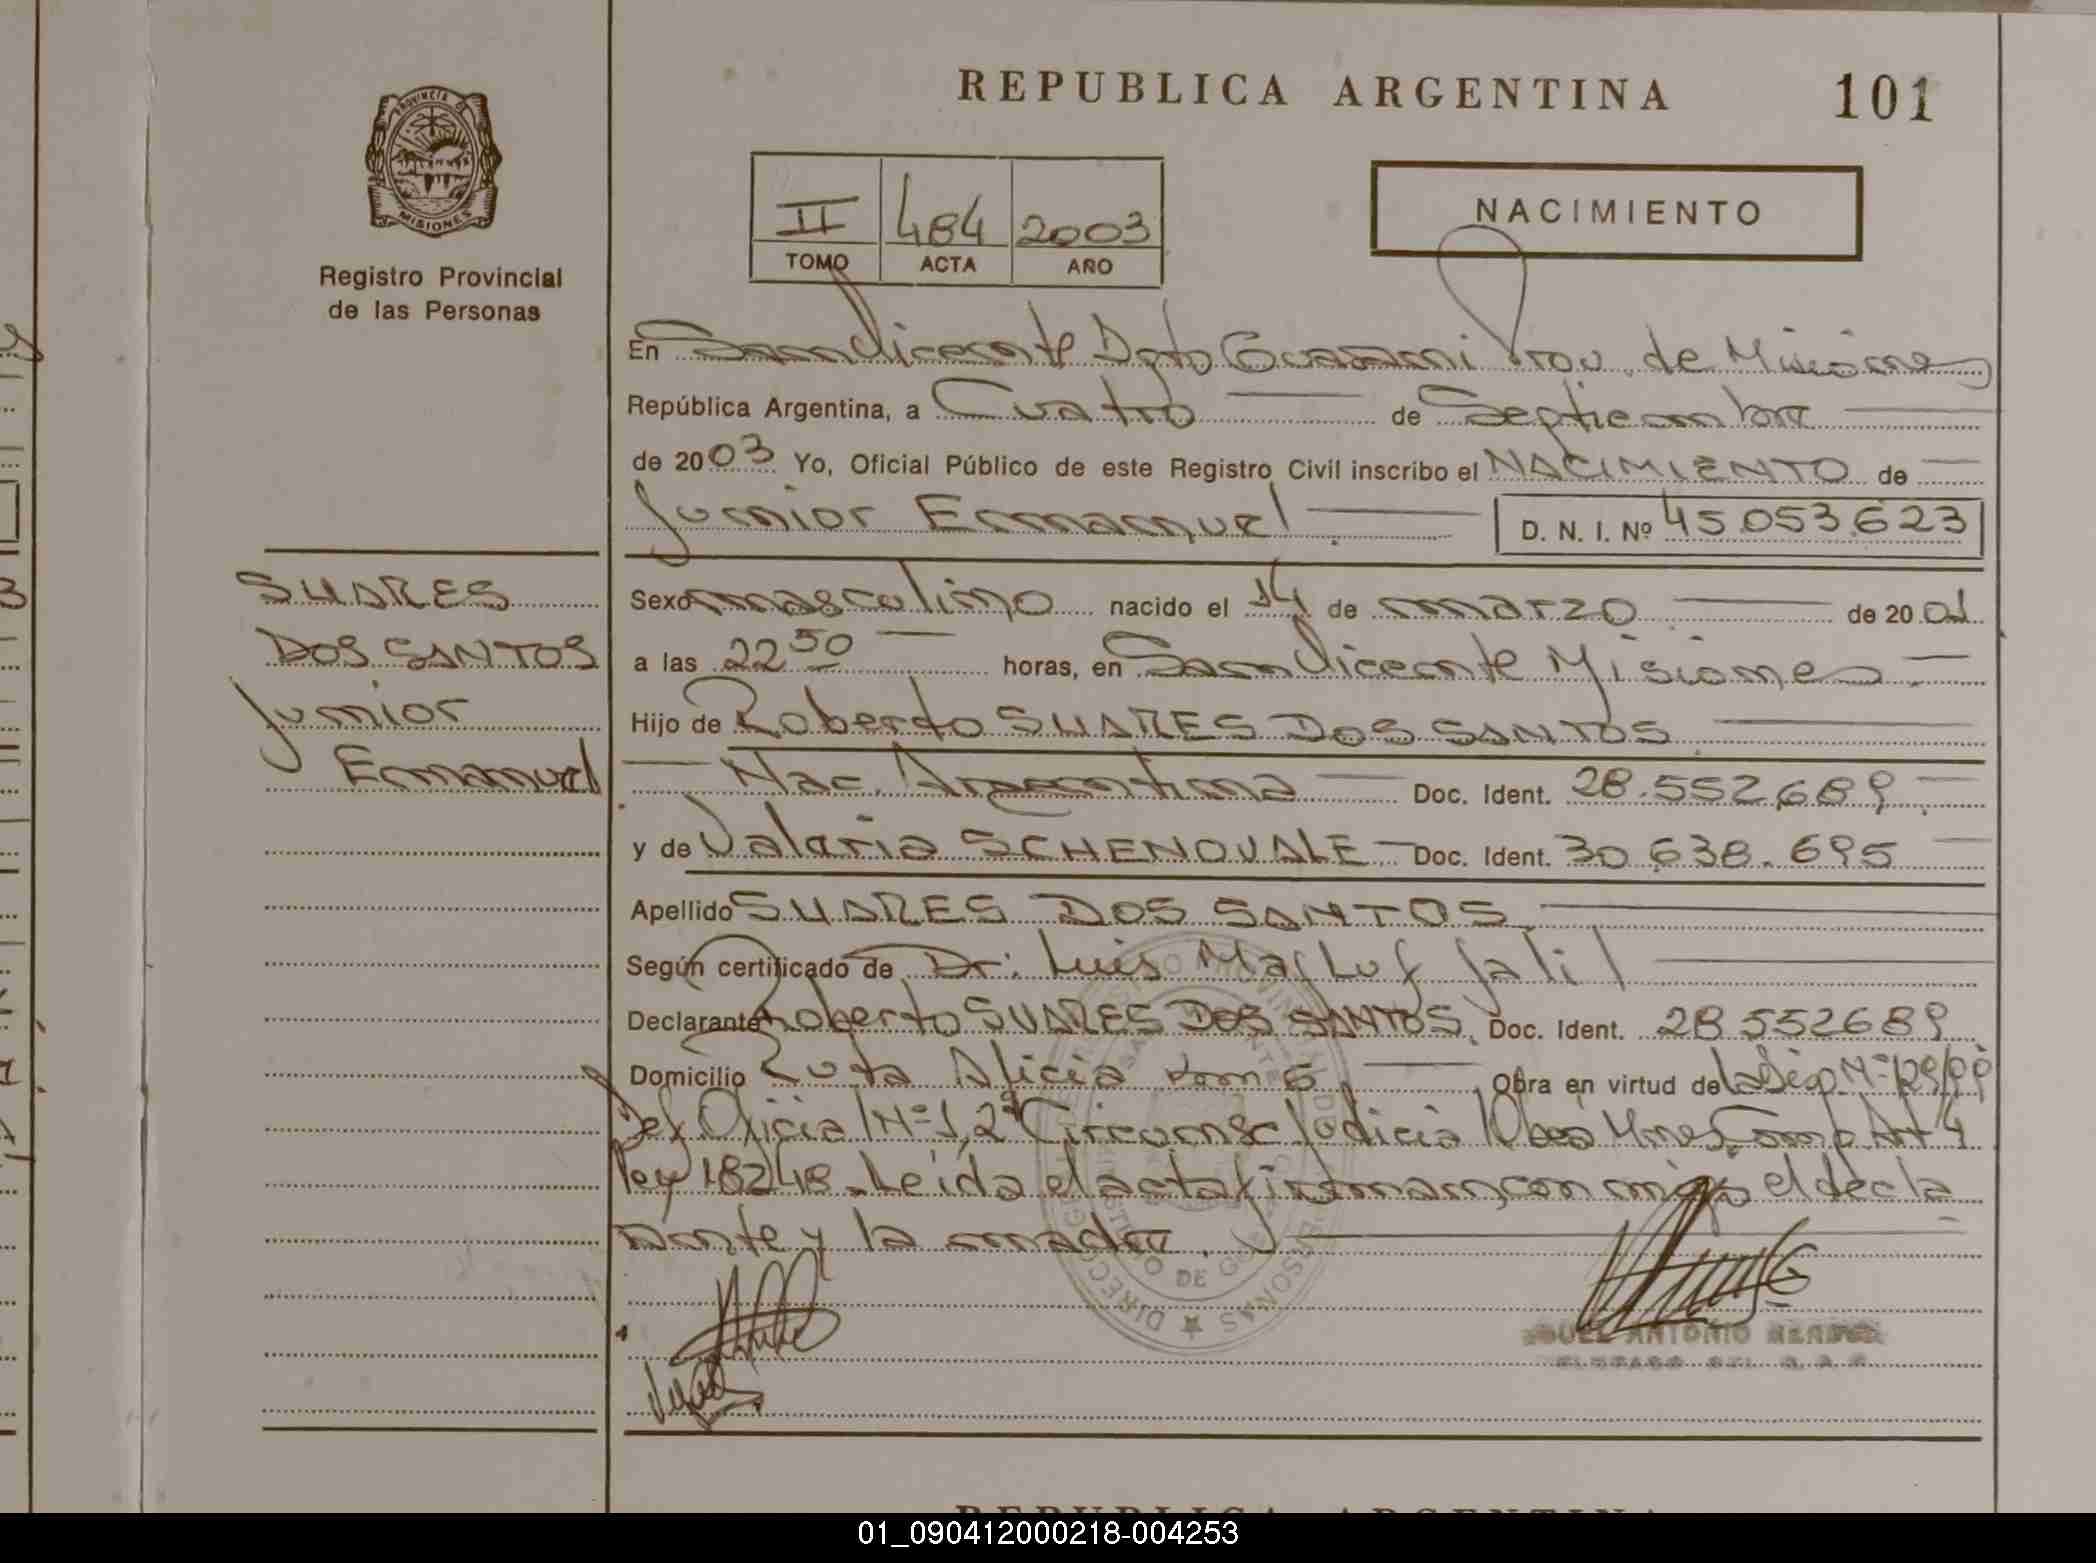 REPUBLICA ARGENTINA
101
PROVINCIA DE
MISIONES
Registro Provincial
de las Personas
II 484 2003
TOMO ACTA AÑO
NACIMIENTO
En San Vicente Dpto Guarani Prov. de Misiones
República Argentina, a Cuatro de Septiembre
de 2003 Yo, Oficial Público de este Registro Civil inscribo el NACIMIENTO de
Junior Emmanuel D. N. I. Nº 45.053.623
SUARES
DOS SANTOS
Junior
Emmanuel
Sexo masculino nacido el 14 de marzo de 2001
a las 22 50 horas, en San Vicente Misiones
Hijo de Roberto SUARES DOS SANTOS
Nac. Argentina Doc. Ident. 28.552.689
y de Valaria SCHENOVALE Doc. Ident. 30.638.695
Apellido SUARES DOS SANTOS
Según certificado de Dr: Luis Jalil
Declarante Roberto SUARES DOS SANTOS, Doc. Ident. 28 552689
Domicilio Ruta Alicia km 6 Obra en virtud de la Disp. Nº 129/99
Def. Oficial Nº 1, 2ª Circunsc Judicial Obera Mnes, Comp. Art 4
ley 18248. Leida el acta firman con migo el decla
rante y la madre.
ANTONIO
REPUBLICA ARGENTINA
01_090412000218-004253